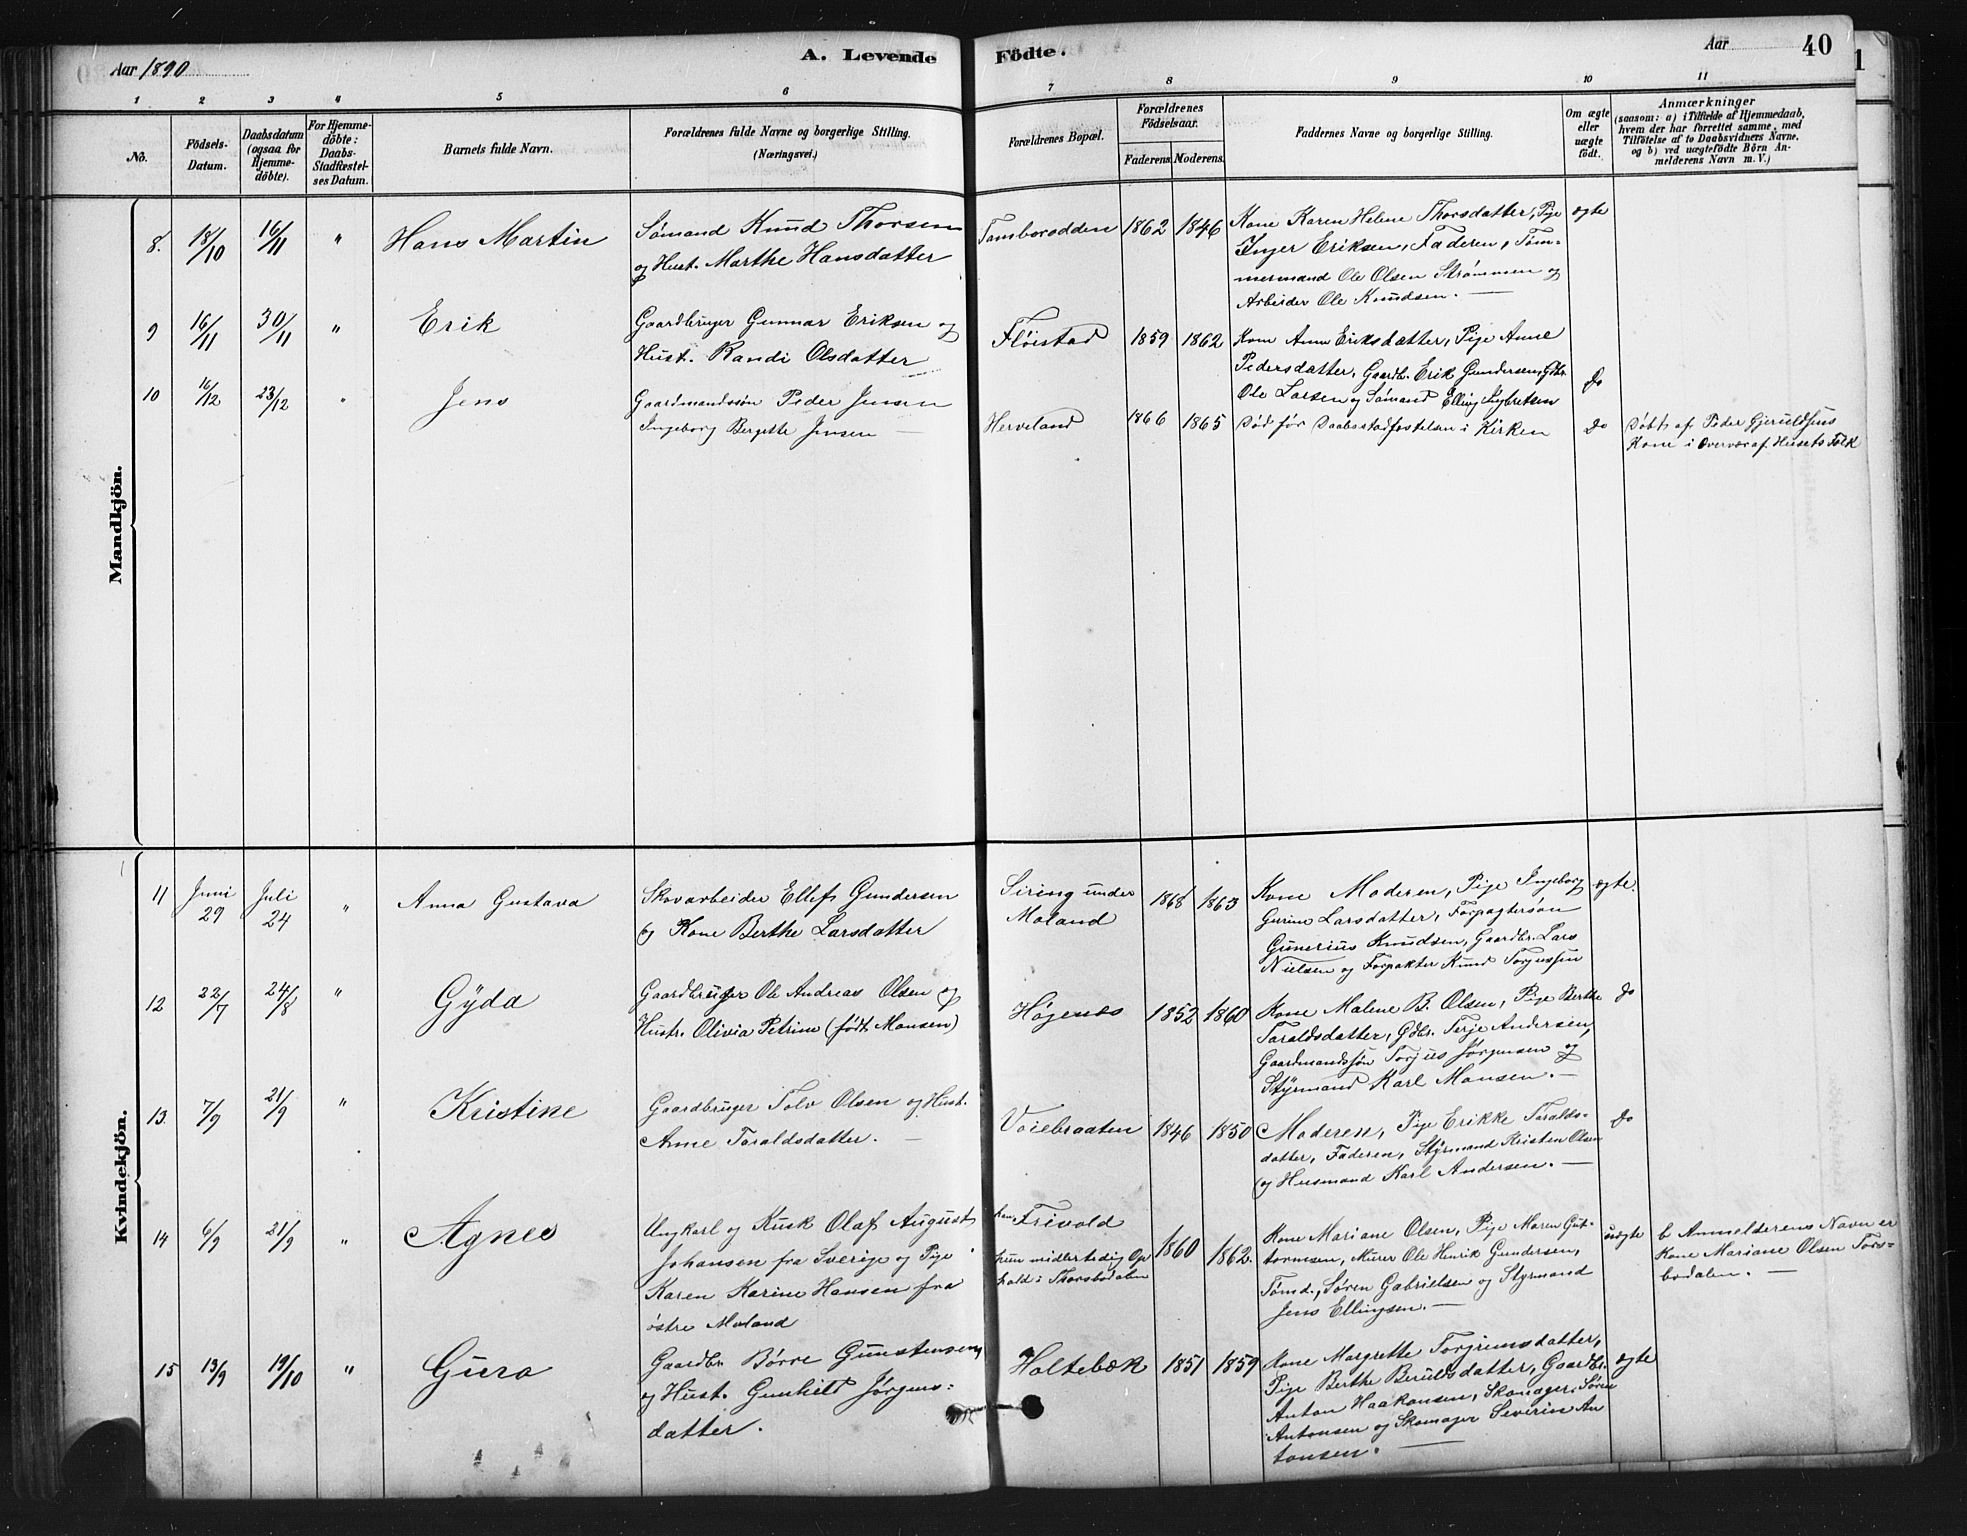 Aar 1890
A. Levende Födte.
Aar
40
1 2 3 4 5 6 7 8 9 10 11
No.
Födsels-
Datum.
Daabsdatum
(ogsaa for
Hjemme-
döbte).
For Hjemme-
döbte:
Daabs-
Stadfæstel-
ses Datum.
Barnets fulde Navn.
Forældrenes fulde Navne og borgerlige Stilling.
(Næringsvei.)
Forældrenes Bopæl.
Forældrenes
Födselsaar.
Faderens. Moderens.
Faddernes Navne og borgerlige Stilling.
Om ægte
eller
uægte
födt.
Anmærkninger
(saasom: a) i Tilfælde af Hjemmedaab,
hvem der har forrettet samme, med
Tilföielse af to Daabsvidners Navne,
og b) ved uægtefödte Börn An-
melderens Navn m. V.)
Mandkjön.
8. 18/10 16/11 " Hans Martin
Sømand Knud Thorsen
og Hust. Marthe Hansdatter
Tamborodden 1862 1846
Kone Karen Helene Thorsdatter, Pige
Inger Eriksen, Faderen, Tøm-
mermand Ole Olsen Strømmen og
Arbeider Ole Knudsen. —
ægte
9 16/11 30/11 " Erik
Gaardbruger Gunnar Eriksen og
Hust. Randi Olsdatter
Fløistad 1859 1862
Kone Anne Eriksdatter, Pige Anne
Pedersdatter, Gaardb. Erik Gundersen, Gdbr.
Ole Larsen og Sømand Elling Syvertsen
Do
10 16/12 23/12 " Jens
Gaardmandssøn Peder Jensen
Ingeborg Bergette Jensen —
Herveland 1866 1865
Død før Daabsstadfæstelsen i Kirken
Do
Døbt af Peder Gjeruldsens
Kone i Overvær af Husets Folk
Kvindekjön.
11 Juni 29 Juli 24 " Anna Gustava
Skovarbeider Ellef Gundersen
og Kone Berthe Larsdatter
Siring under
Moland
1868 1863
Kone Moderen, Pige Ingeborg
Gurine Larsdatter, Forpagtersøn
Gunerius Knudsen, Gaardbr. Lars
Nielsen og Forpakter Knud Torgussen
ægte.
12 22/7 24/8 " Gyda
Gaardbruger Ole Andreas Olsen og
Hustr. Olivia Petrine (født Monsen)
Høgenæs 1852 1860
Kone Malene B. Olsen, Pige Berthe
Taraldsdatter, Gdbr. Terje Andersen,
Gaardmandssøn Torjus Jørgensen og
Styrmand Karl Monsen. —
Do
13. 7/9 21/9 " Kristine
Gaardbruger Tolv Olsen og Hust.
Anne Taraldsdatter. —
Voiebraaten 1846 1850
Moderen, Pige Erikke Taralds-
datter, Faderen, Styrmand Kristen Olsen
og Husmand Karl Andersen. —
Do
14 6/9 21/9 " Agnes
Ungkarl og Kusk Olaf August
Johansen fra Sverige og Pige
Karen Karine Hansen fra
østre Moland
han, Frivold
hun midlertidig Op-
hold i Thorsbodalen
1860 1862.
Kone Mariane Olsen, Pige Maren Gut-
tormsen, Murer Ole Henrik Gundersen,
Tømd., Søren Gabrielsen og Styrmand
Jens Ellingsen. —
uægte
b Anmelderens Navn er
Kone Mariane Olsen Tors-
bodalen. —
15 13/9 19/10 " Guro
Gaardbr. Børre Gunstensen,
og Hust. Gunhild Jørgens-
datter.
Holtebæk 1851 1859
Kone Margrette Torgrimsdatter,
Pige Berthe Beruldsdatter, Gaardbr.
Anton Haakonsen, Skomager Søren
Antonsen og Skomager Severin An
tonsen. —
ægte